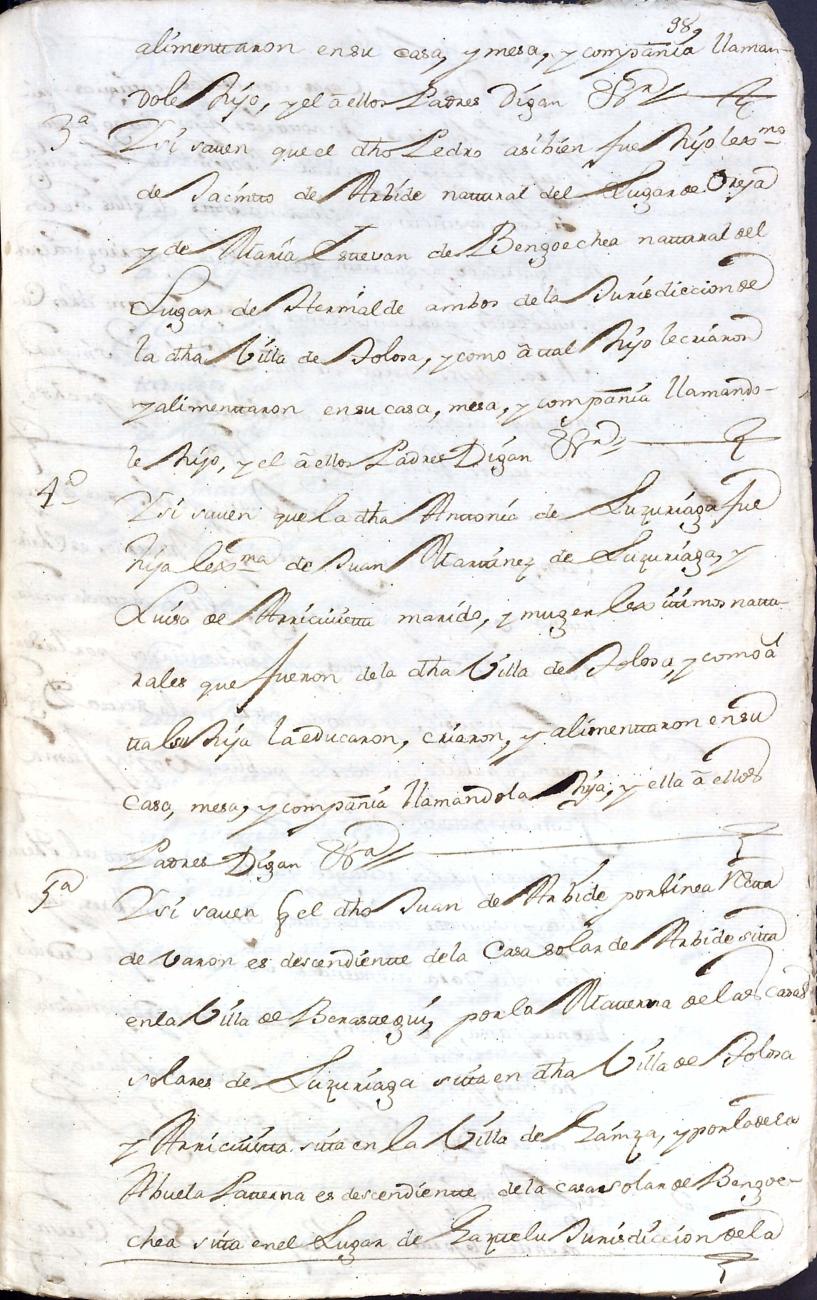 98,
alimenttaron en su casa, y mesa, y compañia llaman-
dole hijo, y el â ellos Padres Digan &ra
3ª Y si saven que el dho Pedro asibien fue hijo lexmo
de Jacintto de Arbide nattural del Lugar de Oreja
y de Maria Estevan de Bengoechea nattural del
Lugar de Hernialde ambos de la Jurisdiccion de
la dha Villa de Tolosa, y como â ttal hijo le criaron
y alimenttaron en su casa, mesa, y compañia llamando-
le hijo, y el â ellos Padres Digan &ra
4ª Y si saven que la dha Anttonia de Luzuriaga fue
hija lexma de Juan Marttinez de Luzuriaga, y
Luisa de Arricivietta marido, y muger lexittimos nattu-
rales que fueron de la dha Villa de Tolosa, y como â
ttal su hija la educaron, criaron, y alimenttaron en su
casa, mesa, y compañia llamandola hija, y ella â ellos
Padres Digan &ra
5ª Y si saven q el dho Juan de Arbide por linea rectta
de varon es descendientte de la Casa solar de Arbide sitta
en la Villa de Berasttegui, por la Matterna de las casas
solares de Luzuriaga sitta en dha Villa de Tolosa
y Arricivitta sitta en la Villa de Gainza, y por la de la
Abuela Patterna es descendientte de la casa solar de Bengoe-
chea sitta en el Lugar de Gaztelu Jurisdiccion de la